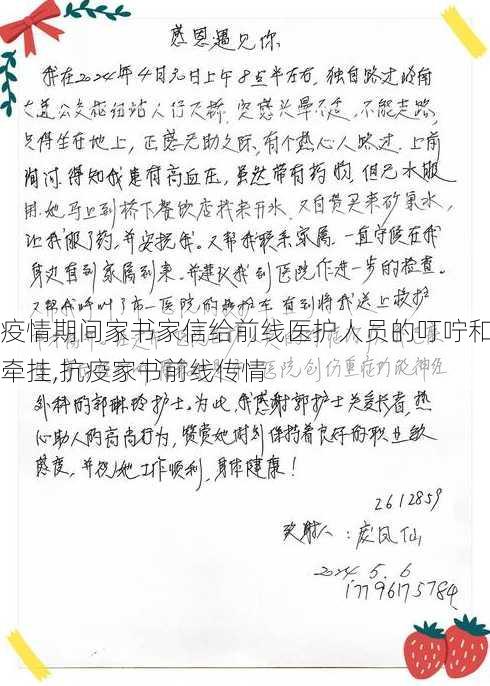 感恩遇见你
我在2024年4月30日上午8点半左右，独自路过岭南
大道公交枢纽站人行天桥，突感头晕不适，不能走路，
只得坐在地上，正感无助之际，有个热心人路过，上前
询问，得知我患有高血压，虽然带有药物，但无水服
用。她马上到桥下餐饮店找来开水，又自费买来矿泉水，
让我服了药，并安抚我。又帮我联系家属，一直守候在我
身边直到家属到来，并建议我到医院作进一步的检查。
又帮我呼叫了市一医院的救护车，直到将我送上救护
疫情期间家书家信给前线医护人员的叮咛和
牵挂,抗疫家书前线传情
医院创伤重症功能神经
外科的郭琳玲护士。为此，我感谢郭护士关爱长者，热
心助人的高尚行为，赞赏她时刻保持着良好的职业敏
感度，并祝她工作顺利，身体健康！
2612859
致谢人：庞凤仙
2024.5.6
17796175784